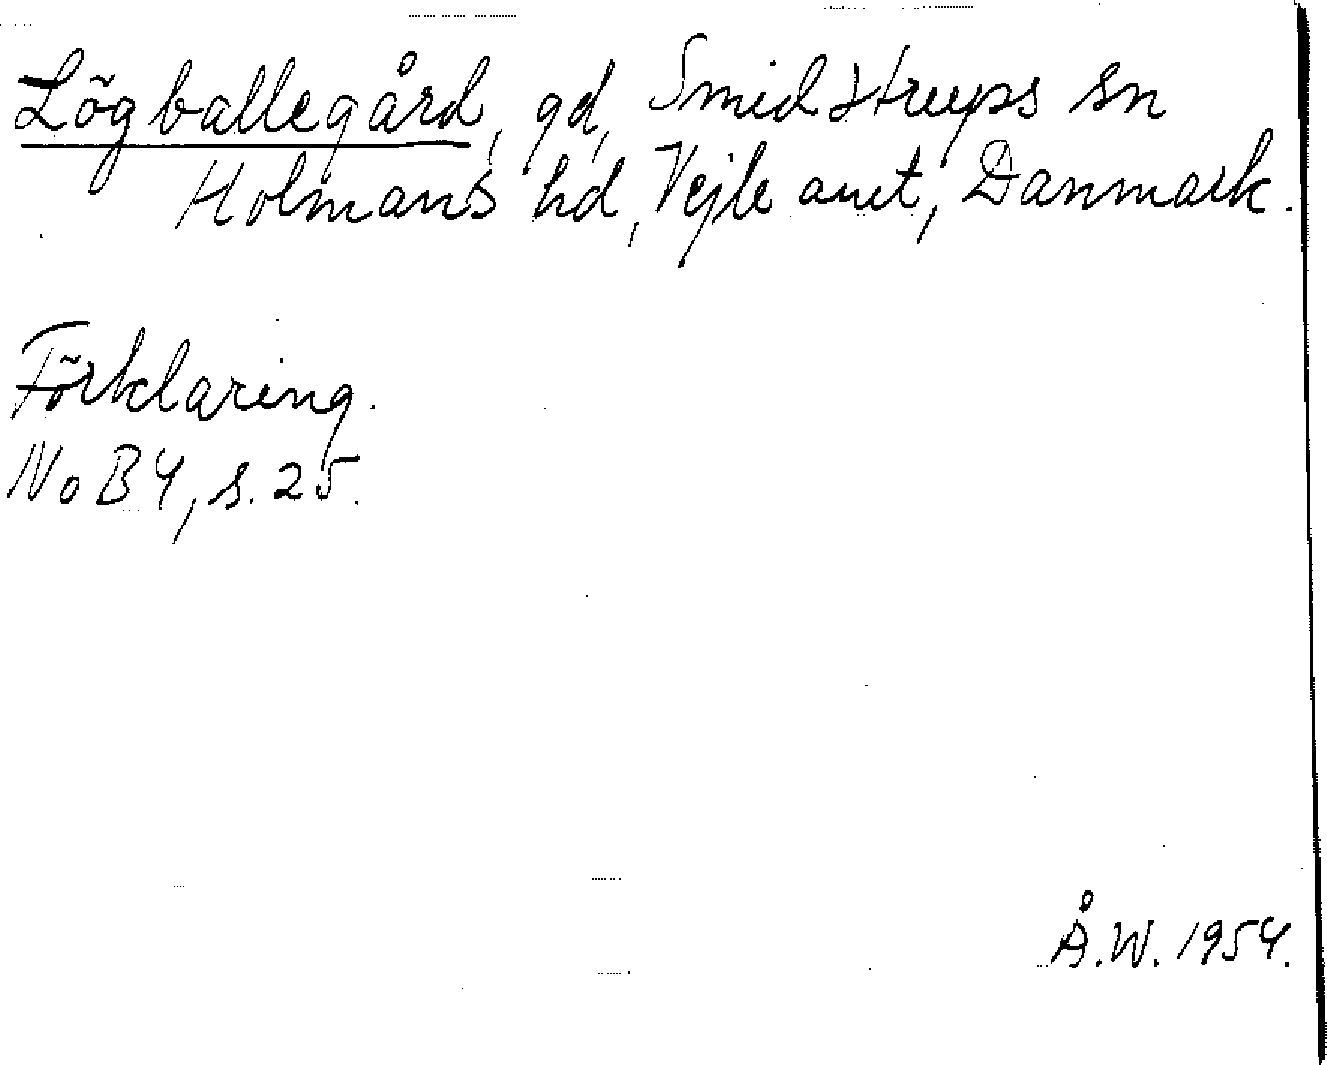 Lögballegård, gd, Smidstrups sn
Holmans hd, Vejle amt, Danmark.
Förklaring.
NoB 4, s. 25.
Å.W. 1954.